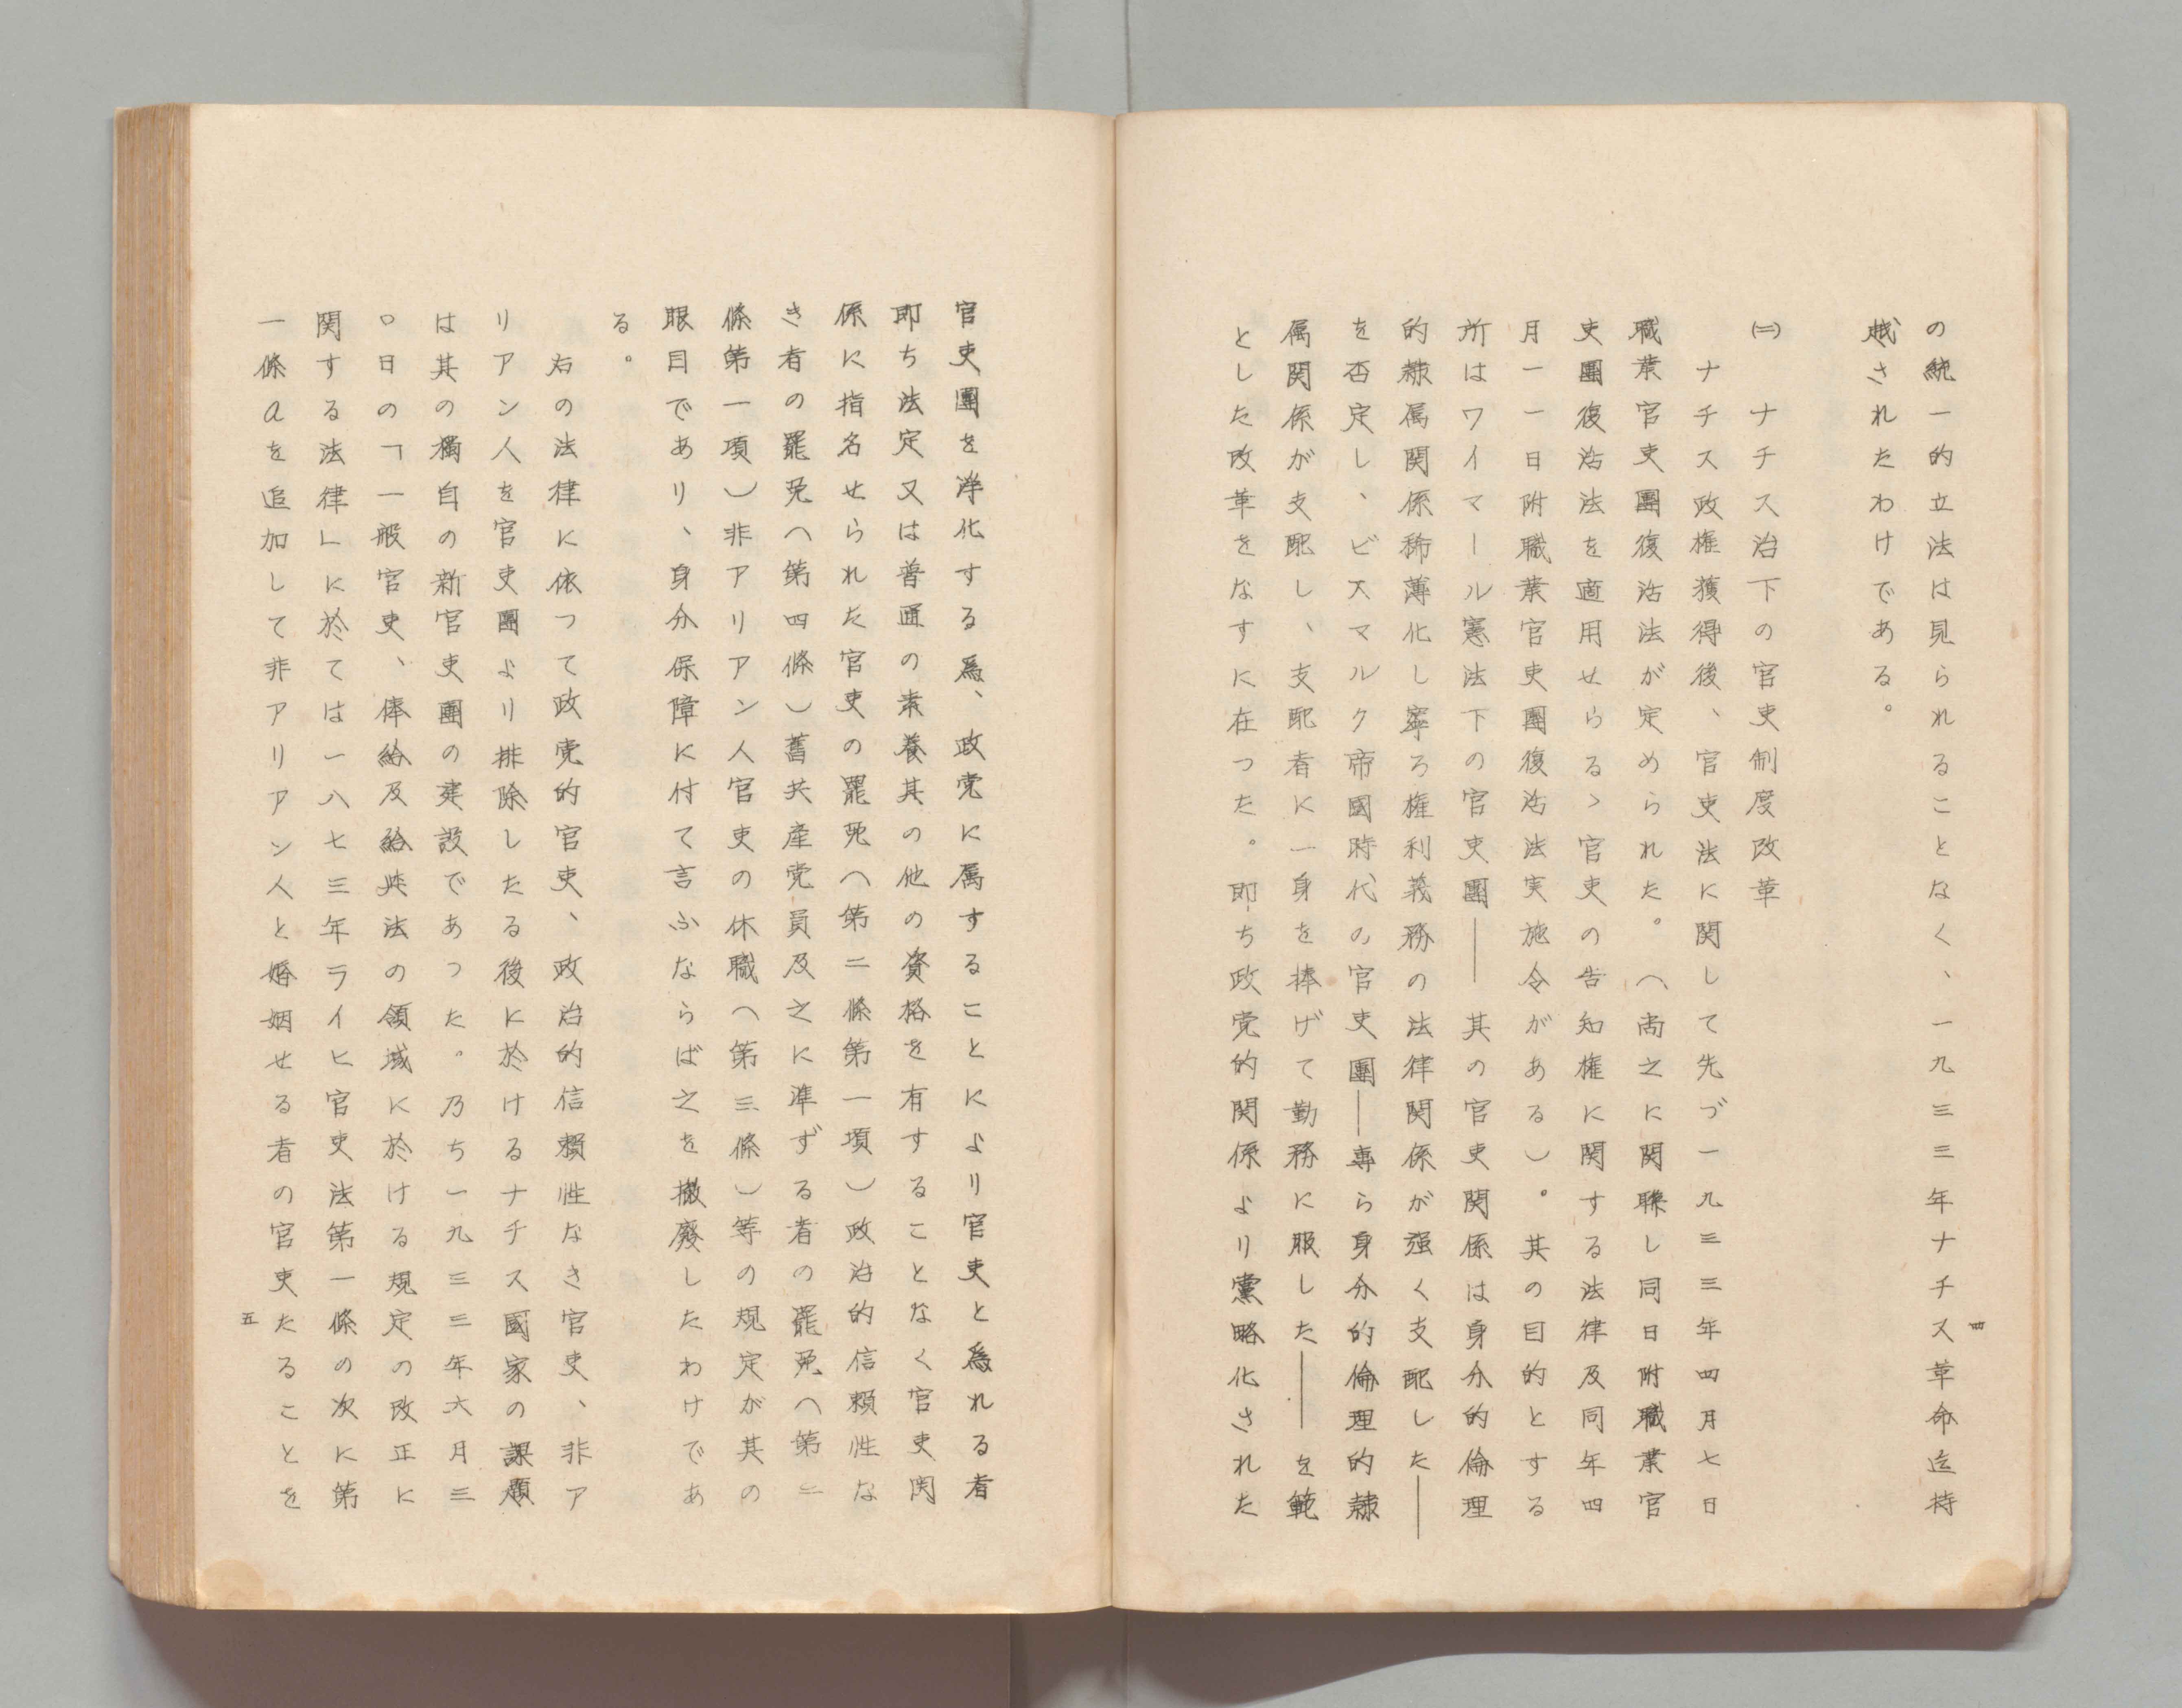 の統一的立法は見られることなく、一九三三年ナチス革命迄持
越されたわけである。
㈡　ナチス治下の官吏制度改革
ナチス政権獲得後、官吏法に関して先づ一九三三年四月七日
職業官吏團復活法が定められた。（尚之に関聯し同日附職業官
吏團復活法を適用せらるゝ官吏の告知権に関する法律及同年四
月一一日附職業官吏團復活法実施令がある）。其の目的とする
所はワイマール憲法下の官吏團――其の官吏関係は身分的倫理
的隷属関係稀薄化し寧ろ権利義務の法律関係が强く支配した――
を否定し、ビスマルク帝國時代の官吏團―專ら身分的倫理的隷
属関係が支配し、支配者に一身を捧げて勤務に服した――を範
とした改革をなすに在つた。即ち政党的関係より黨略化された
四
官吏團を浄化する爲、政党に属することにより官吏と爲れる者
即ち法定又は普通の素養其の他の資格を有することなく官吏関
係に指名せられた官吏の罷免（第二條第一項）政治的信頼性な
き者の罷免（第四條）舊共産党員及之に準ずる者の罷免（第二
條第一項）非アリアン人官吏の休職（第三條）等の規定が其の
眼目であり、身分保障に付て言ふならば之を撤廢したわけであ
る。
右の法律に依つて政党的官吏、政治的信頼性なき官吏、非ア
リアン人を官吏團より排除したる後に於けるナチス國家の課題
は其の獨自の新官吏團の建設であつた。乃ち一九三三年六月三
〇日の「一般官吏、俸給及給與法の領域に於ける規定の改正に
関する法律」に於ては一八七三年ライヒ官吏法第一條の次に第
一條aを追加して非アリアン人と婚姻せる者の官吏たることを
五